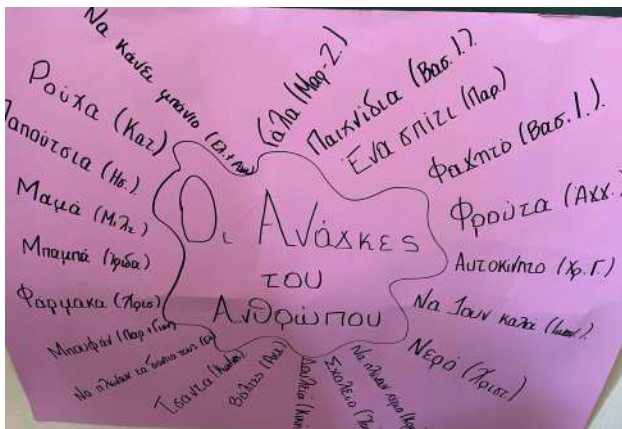 Οι Ανάγκες
του
Ανθρώπου
Να κάνει μπάνιο
Γάλα (Μαρ-Ζ.)
Παιχνίδια (Βασ. Ι.).
Ένα σπίτι (Παρ.)
Φαγητό (Βασ. Ι.).
Φρούτα (Αγγ.)
Αυτοκίνητο (Χρ. Γ.)
Να ζουν καλά
Νερό (Χριστ.)
Να πλένουν χέρια
Σχολείο
Δουλειά
Βόλτες
Τσάντα
Να πλένουν τα δόντια τους
Μπουφάν (Παρ + Γιαν)
Φάρμακα (Χρισ)
Μπαμπά (Ιριδα)
Μαμά (Μιλτ.)
Παπούτσια (Ησ.)
Ρούχα (Κατ)